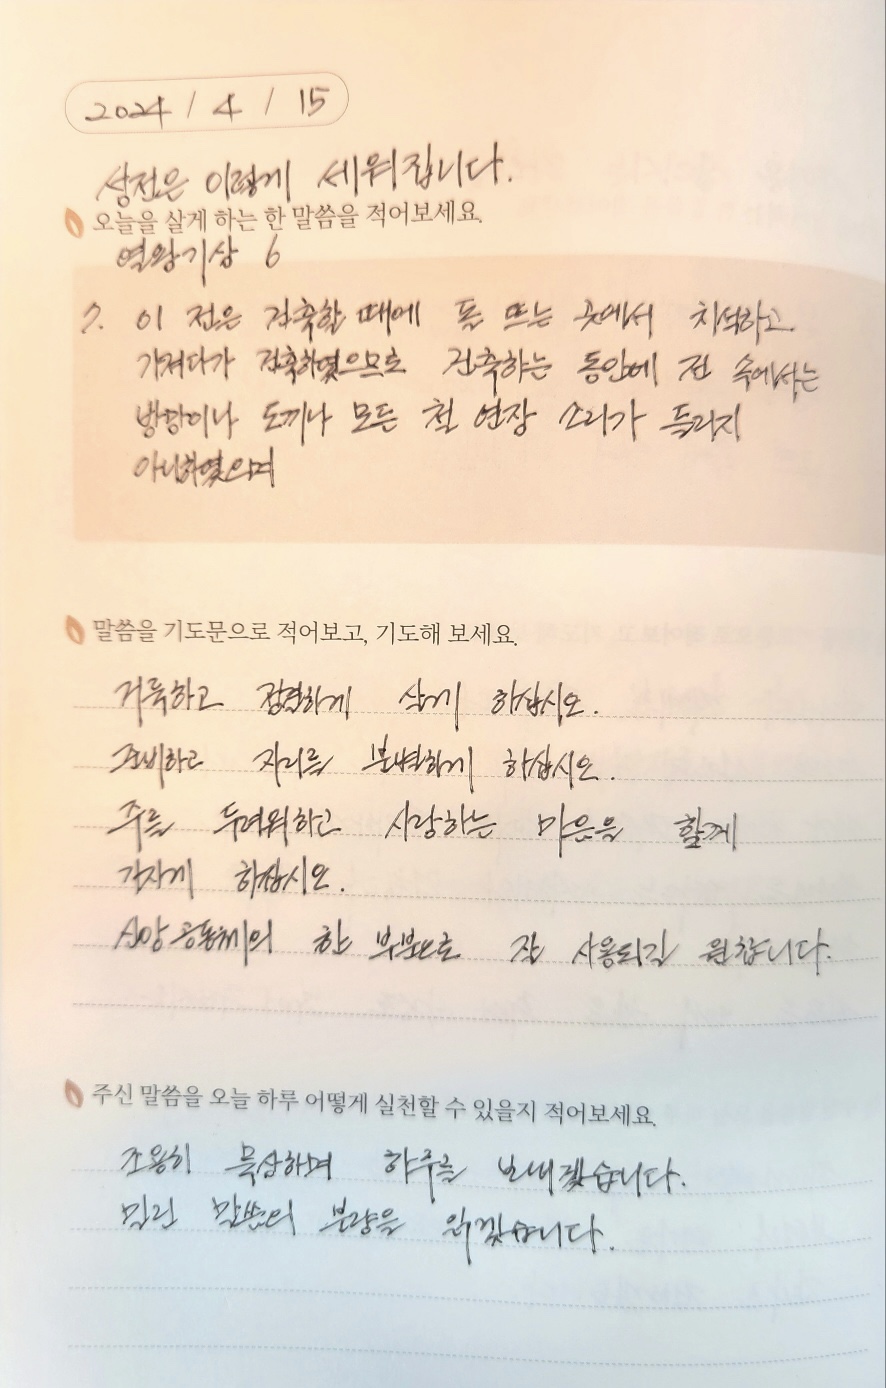 2024 / 4 / 15
성전은 이렇게 세워집니다.
오늘을 살게 하는 한 말씀을 적어보세요.
열왕기상 6
7. 이 전은 건축할 때에 돌 뜨는 곳에서 치석하고
가져다가 건축하였으므로 건축하는 동안에 전 속에서는
방망이나 도끼나 모든 철 연장 소리가 들리지
아니하였으며
말씀을 기도문으로 적어보고, 기도해 보세요.
거룩하고 정결하게 살게 하십시오.
준비하고 자리를 분별하게 하십시오.
주를 두려워하고 사랑하는 마음을 함께
갖자게 하십시오.
신앙 공동체의 한 부분으로 잘 사용되길 원합니다.
주신 말씀을 오늘 하루 어떻게 실천할 수 있을지 적어보세요.
조용히 묵상하며 하루를 보내겠습니다.
밀린 말씀의 분량을 읽겠습니다.